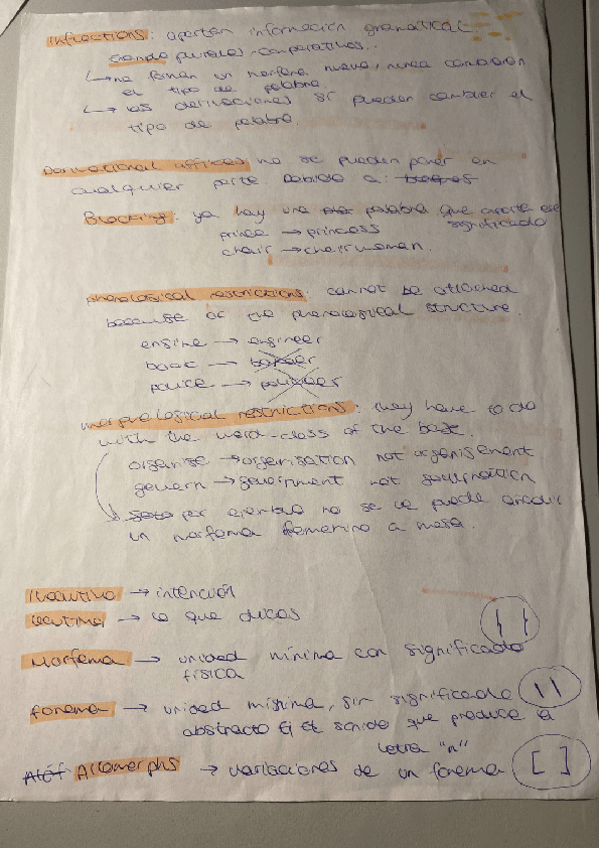 Inflections: aportan información gramatical
creando plurales, comparativos...
↳ no forman un morfema nuevo, nunca cambian
el tipo de palabra.
↳ las derivaciones sí pueden cambiar el
tipo de palabra.
Derivational affixes no se pueden poner en
cualquier parte debido a:
Blocking: ya hay una palabra que aporte ese
significado
prince → princess
chair → chairwoman.
phonological restrictions: cannot be attached
because of the phonological structure.
engine → engineer
book → booker
police → policeer
morphological restrictions: they have to do
with the word-class of the base.
organise → organisation not organisement
govern → government not governation
↳ por ejemplo no se le puede añadir
un morfema femenino a mesa.
Ilocutivo → intención
locutivo → lo que dices
{ }
Morfema → unidad mínima con significado
física
fonema → unidad mínima, sin significado
abstracto Ej El sonido que produce la
letra "n"
Allomorphs → variaciones de un fonema [ ]